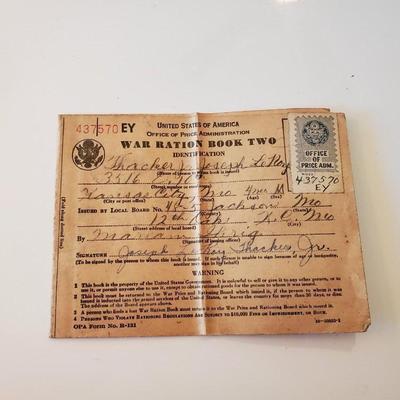 437570 EY
UNITED STATES OF AMERICA
OFFICE OF PRICE ADMINISTRATION
WAR RATION BOOK TWO
IDENTIFICATION
OFFICE
OF
PRICE ADM.
437570
EY
Thacker, Joseph LeRoy
(Name of person to whom book is issued)
3516
(Street number or rural route)
Kansas City, Mo M
(City or post office) (State) (Age) (Sex)
ISSUED BY LOCAL BOARD NO. Jackson Mo
(County) (State)
12th Oak K.C. Mo
(Street address of local board) (City)
By
(Signature of issuing officer)
SIGNATURE Joseph Thacker, Jr.
(To be signed by the person to whom this book is issued. If such person is unable to sign because of age or incapacity, another may sign in his behalf)
WARNING
1 This book is the property of the United States Government. It is unlawful to sell or give it to any other person, or to use it or permit anyone else to use it, except to obtain rationed goods for the person to whom it was issued.
2 This book must be returned to the War Price and Rationing Board which issued it, if the person to whom it was issued is inducted into the armed services of the United States, or leaves the country for more than 30 days, or dies. The address of the Board appears above.
3 A person who finds a lost War Ration Book must return it to the War Price and Rationing Board which issued it.
4 PERSONS WHO VIOLATE RATIONING REGULATIONS ARE SUBJECT TO $10,000 FINE OR IMPRISONMENT, OR BOTH.
OPA Form No. R-121